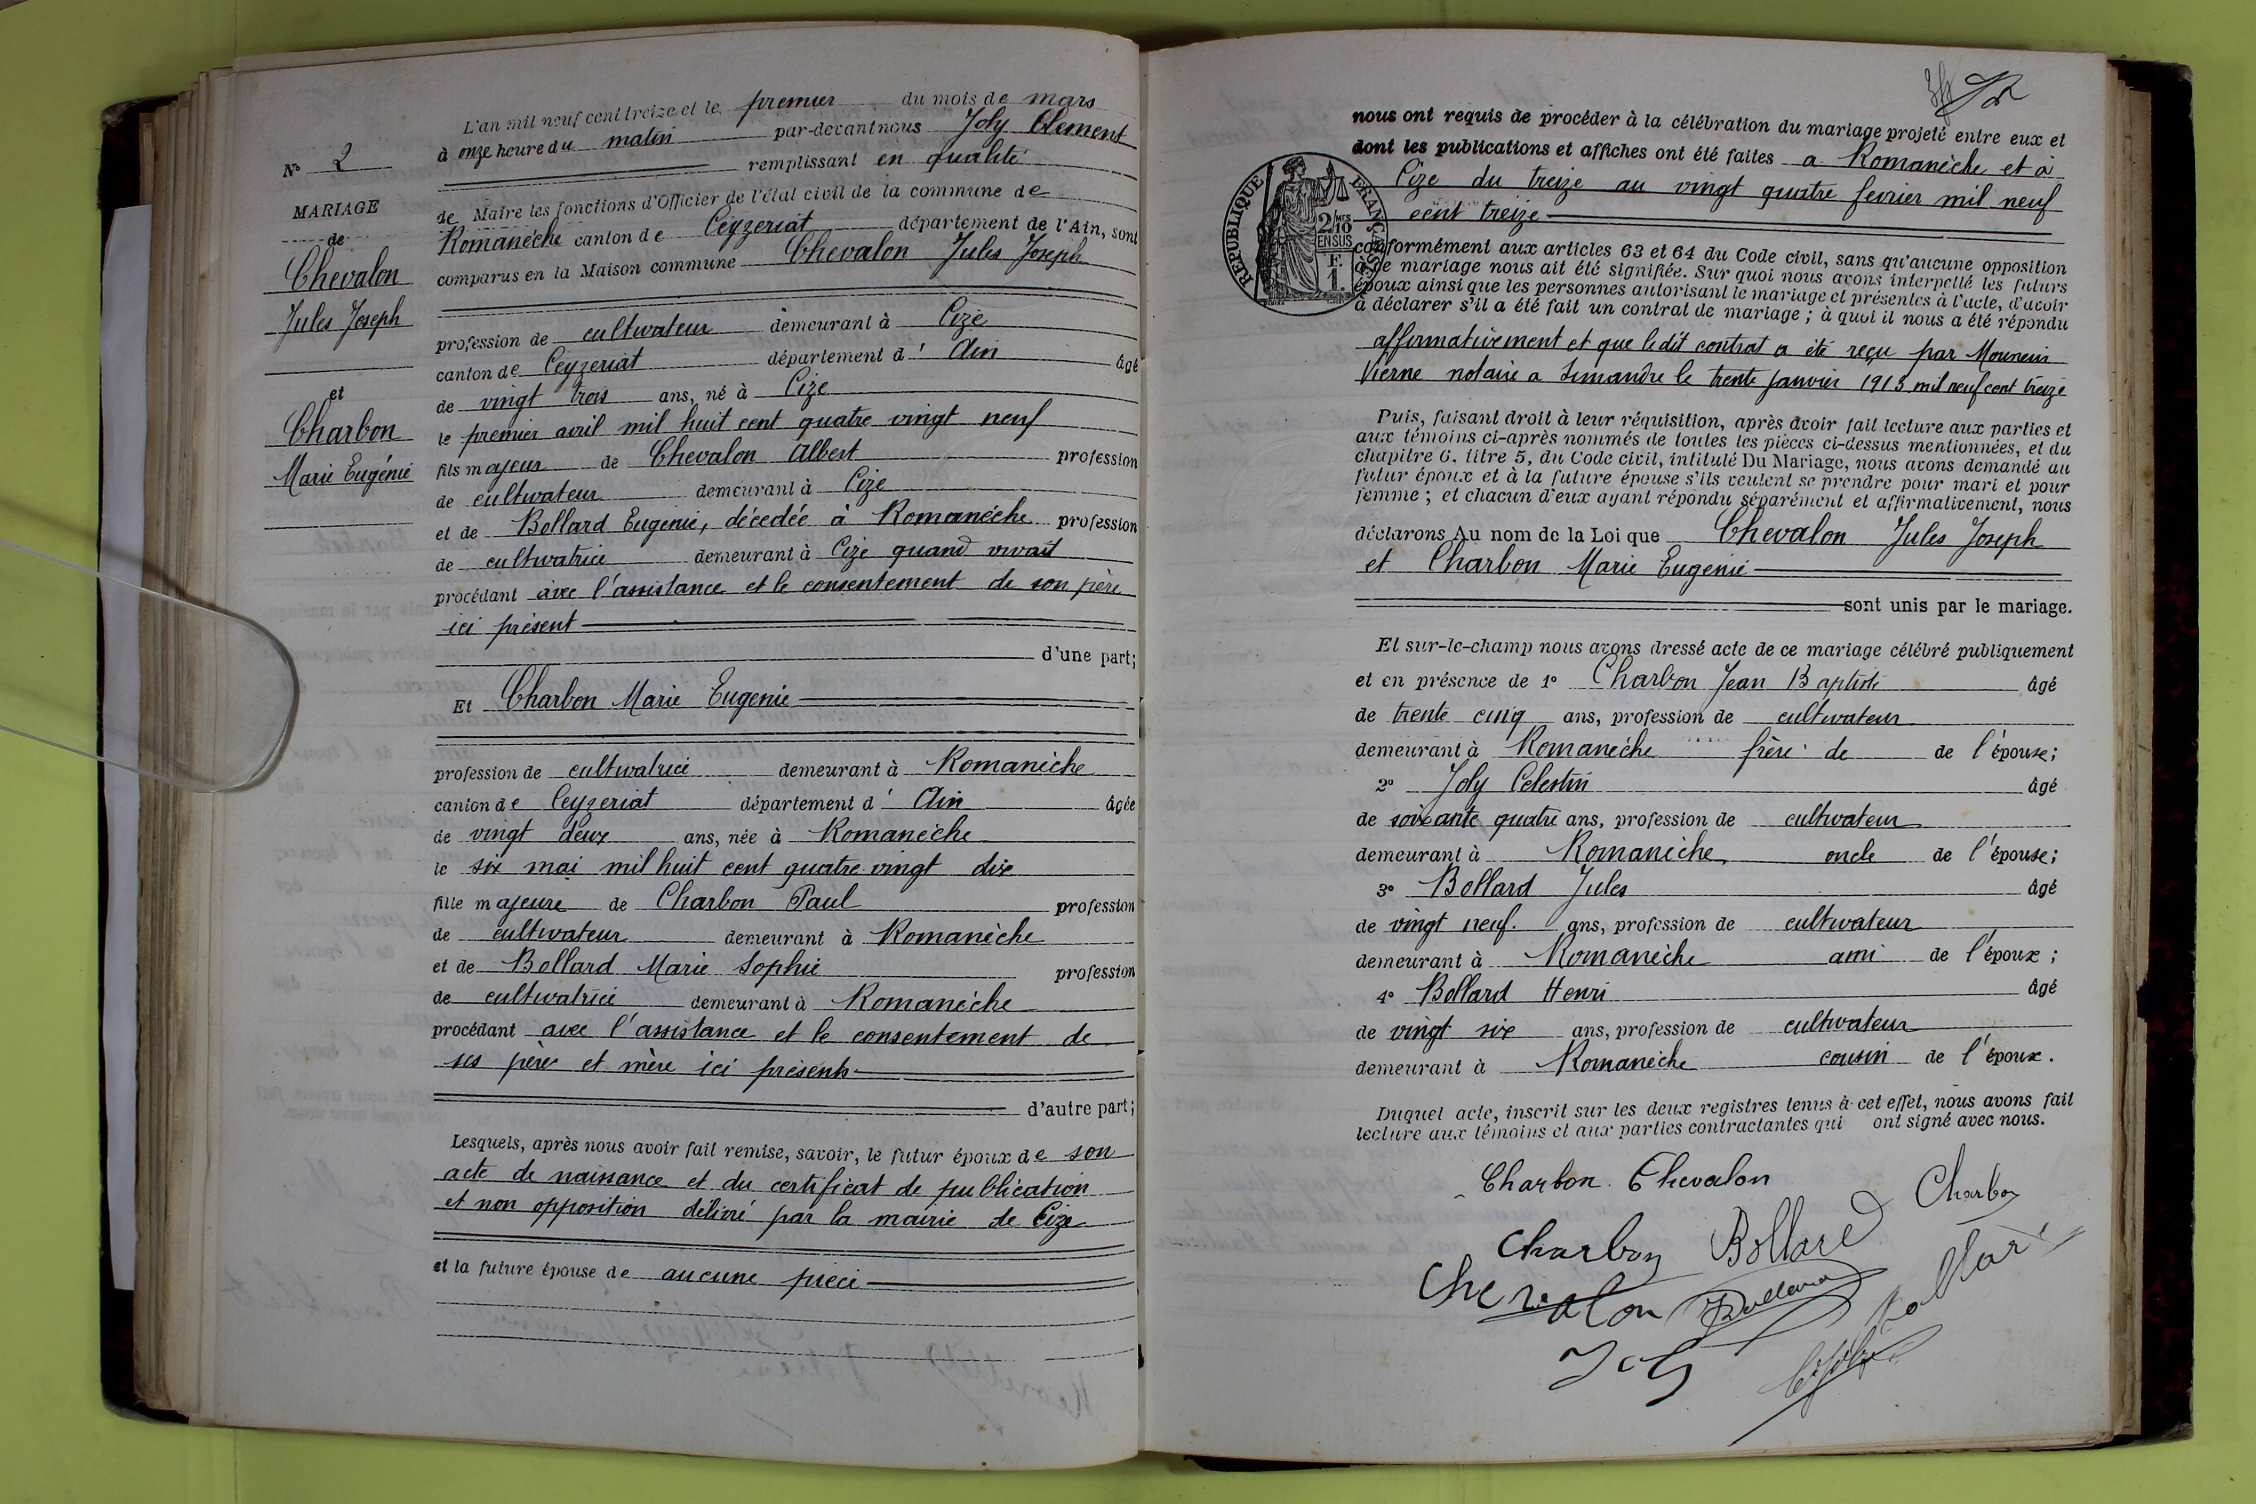 N° 2
MARIAGE
de
Chevalon
Jules Joseph
et
Charbon
Marie Eugénie
L'an mil neuf cent treize et le premier du mois de mars
à onze heure du matin par-devant nous Joly Clement
remplissant en qualité
de Maire les fonctions d'Officier de l'état civil de la commune de
Romanéche canton de Ceyzeriat département de l'Ain, sont
comparus en la Maison commune Chevalon Jules Joseph
profession de cultivateur demeurant à Cize
canton de Ceyzeriat département d' Ain âgé
de vingt trois ans, né à Cize
le premier avril mil huit cent quatre vingt neuf
fils majeur de Chevalon Albert profession
de cultivateur demeurant à Cize
et de Bollard Eugenie, décedée à Romanéche profession
de cultivatrice demeurant à Cize quand vivait
procédant avec l'assistance et le consentement de son père
ici présent
d'une part;
Et Charbon Marie Eugenie
profession de cultivatrice demeurant à Romanèche
canton de Ceyzeriat département d' Ain âgée
de vingt deux ans, née à Romanèche
le six mai mil huit cent quatre vingt dix
fille majeure de Charbon Paul profession
de cultivateur demeurant à Romanèche
et de Bollard Marie Sophie profession
de cultivatrice demeurant à Romanèche
procédant avec l'assistance et le consentement de
ses père et mère ici présents
d'autre part;
Lesquels, après nous avoir fait remise, savoir, le futur époux de son
acte de naissance et du certificat de publication
et non opposition délivré par la mairie de Cize
et la future épouse de aucune pièce
nous ont requis de procéder à la célébration du mariage projeté entre eux et
dont les publications et affiches ont été faites a Romanèche et à
Cize du treize au vingt quatre fevrier mil neuf
cent treize
RÉPUBLIQUE FRANÇAISE
2/10 MES
EN SUS
F.
1.
conformément aux articles 63 et 64 du Code civil, sans qu'aucune opposition
à ce mariage nous ait été signifiée. Sur quoi nous avons interpellé les futurs
époux ainsi que les personnes autorisant le mariage et présentes à l'acte, d'avoir
à déclarer s'il a été fait un contrat de mariage; à quoi il nous a été répondu
affirmativement et que ledit contrat a été reçu par Monsieur
Vierne notaire a Simandre le trente janvier 1913 mil neuf cent treize
Puis, faisant droit à leur réquisition, après avoir fait lecture aux parties et
aux témoins ci-après nommés de toutes les pièces ci-dessus mentionnées, et du
chapitre 6. titre 5, du Code civil, intitulé Du Mariage, nous avons demandé au
futur époux et à la future épouse s'ils veulent se prendre pour mari et pour
femme; et chacun d'eux ayant répondu séparément et affirmativement, nous
déclarons Au nom de la Loi que Chevalon Jules Joseph
et Charbon Marie Eugenie
sont unis par le mariage.
Et sur-le-champ nous avons dressé acte de ce mariage célébré publiquement
et en présence de 1° Charbon Jean Baptiste âgé
de trente cinq ans, profession de cultivateur
demeurant à Romanéche frère de de l'épouse;
2° Joly Celestin âgé
de soixante quatre ans, profession de cultivateur
demeurant à Romanèche, oncle de l'épouse;
3° Bollard Jules âgé
de vingt neuf. ans, profession de cultivateur
demeurant à Romanèche ami de l'époux;
4° Bollard Henri âgé
de vingt six ans, profession de cultivateur
demeurant à Romanèche cousin de l'époux.
Duquel acte, inscrit sur les deux registres tenus à cet effet, nous avons fait
lecture aux témoins et aux parties contractantes qui ont signé avec nous.
Charbon. Chevalon
Charbon
Charbon Bollard
Chevalon Bollard Bollard
Joly